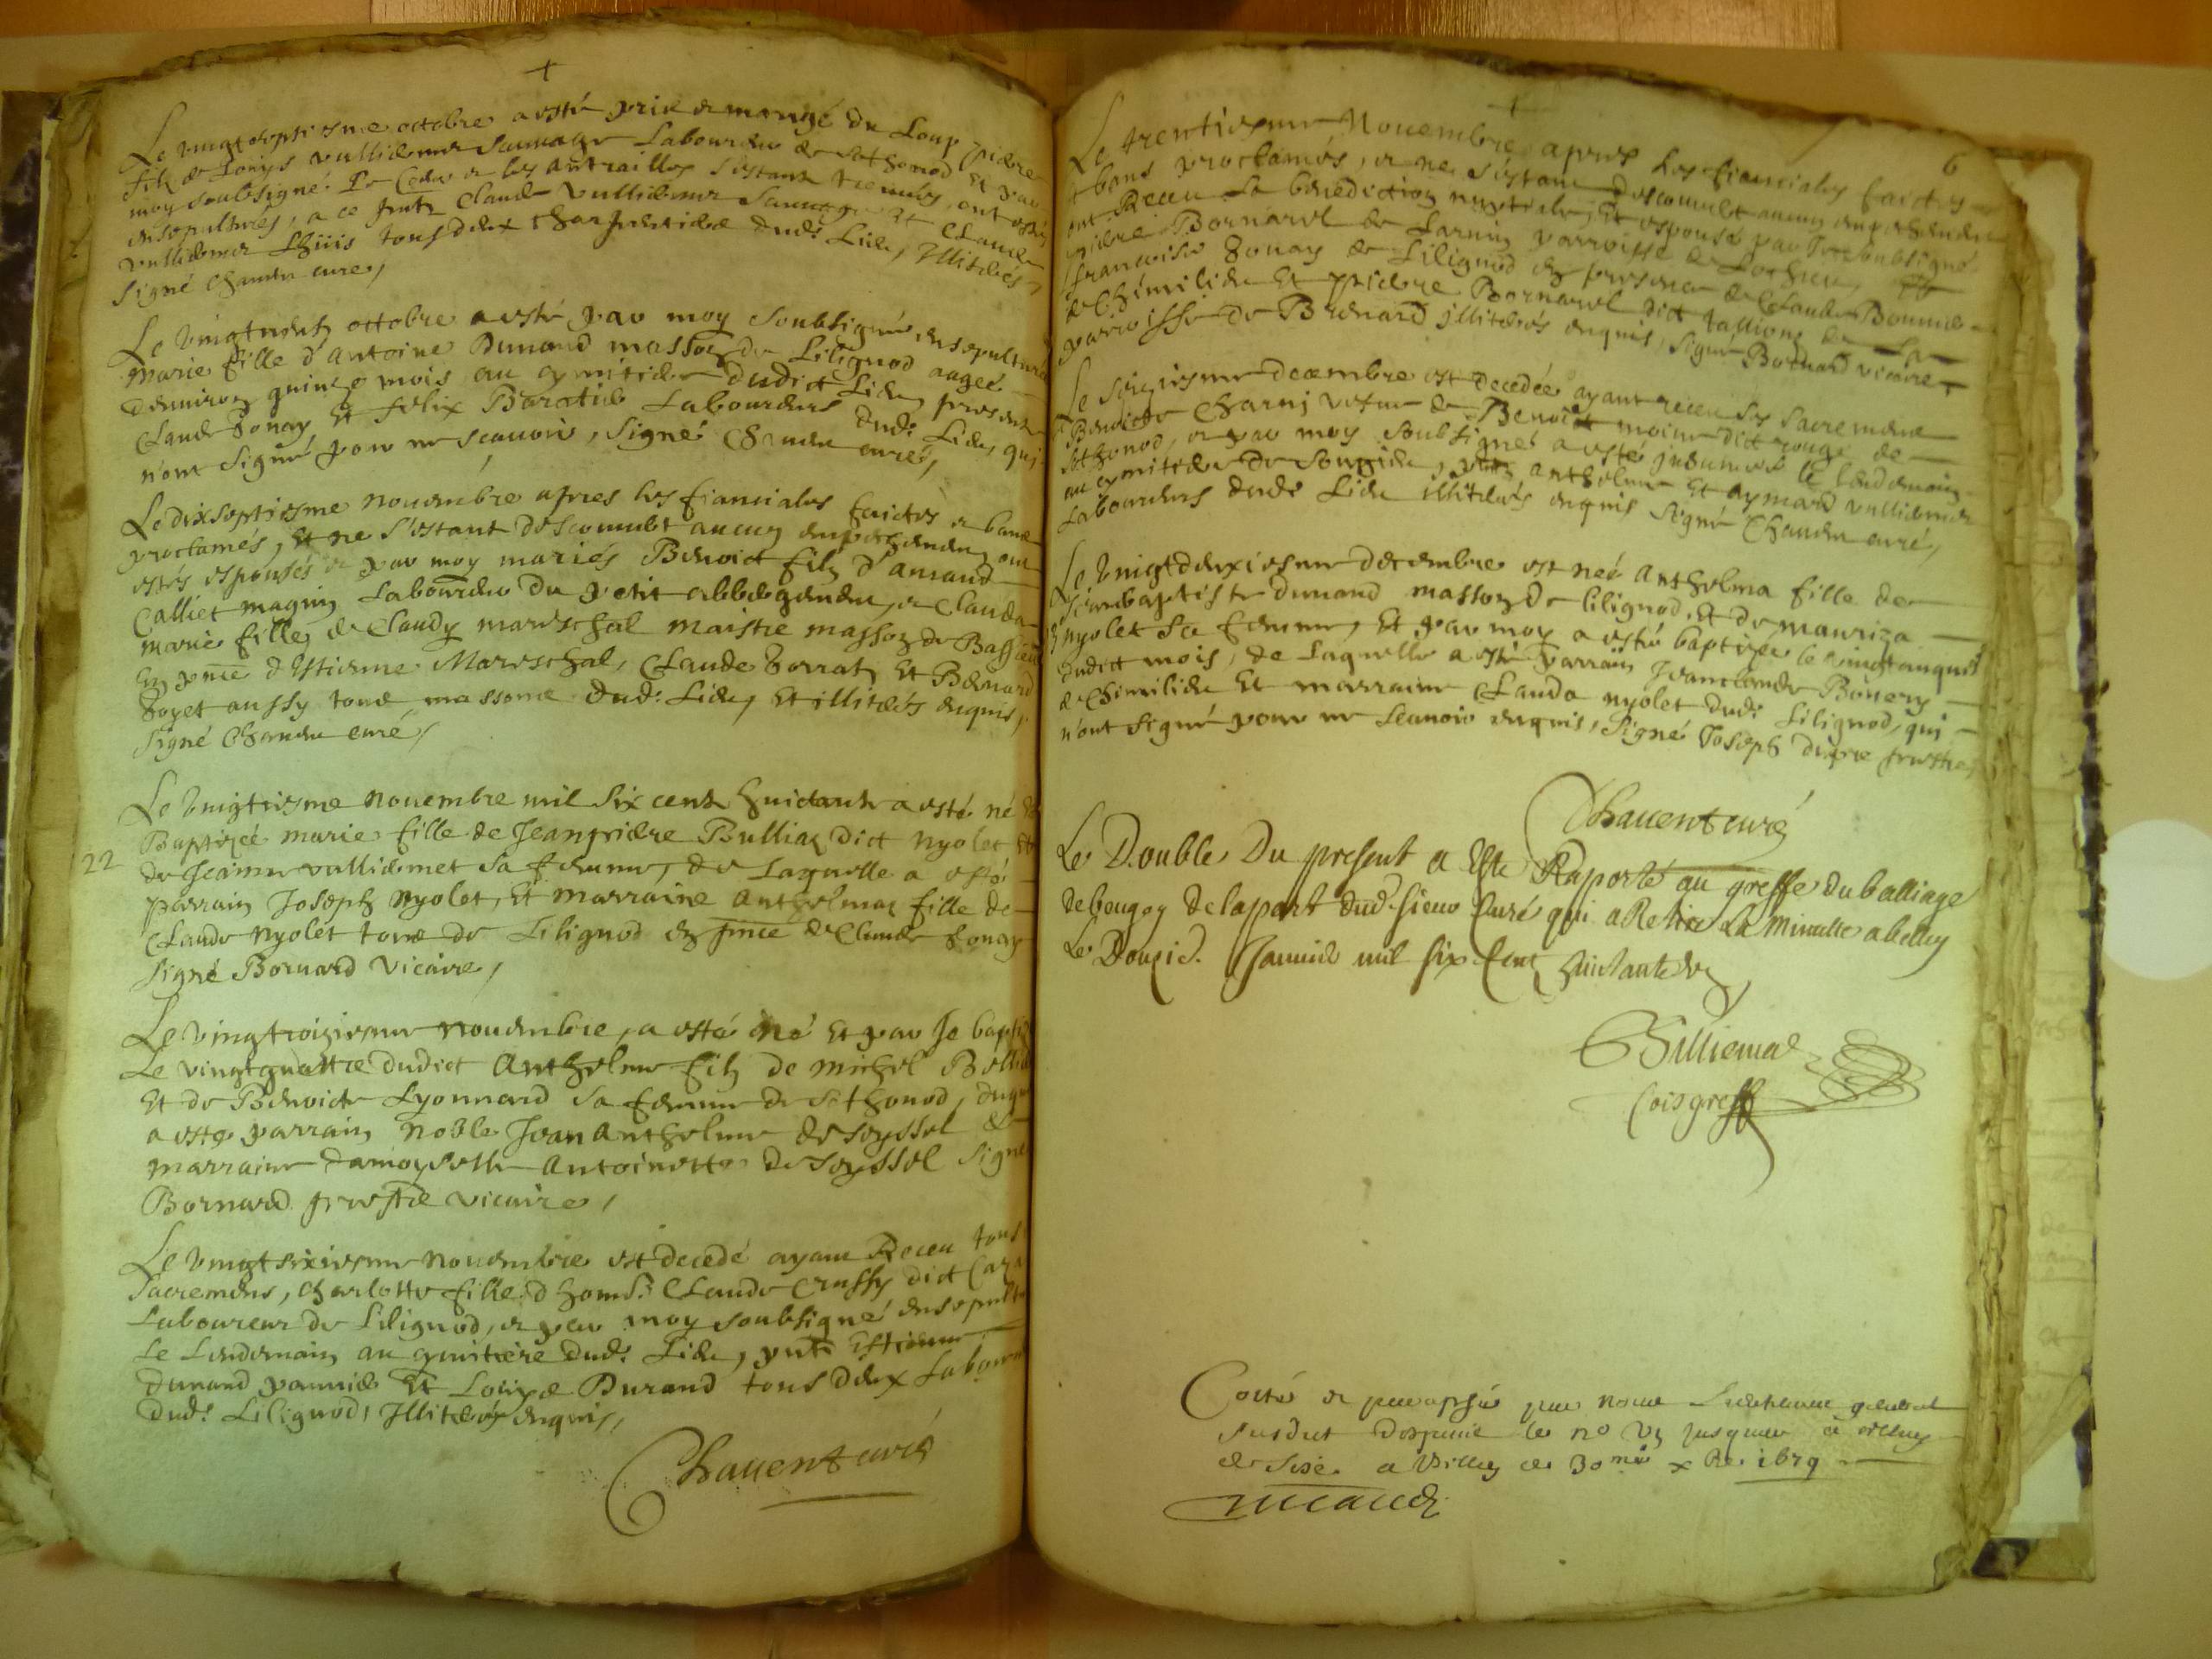 +
Le vingtseptiesme octobre a esté pris et mangé du Loup pierre
filz de Louys vulliemer sauvage Laboureur de Sothonod Et par
moy soubsigné Le Cœur et les antrailles s'estant treuvés, ont esté
ensepultures, a ce pntz Claude vulliemer sauvage et Claude
vulliemer tous deux charpentiers dud: Lieu, Illiterés,
signé Chavent curé,
Le vingtneufz octobre a esté par moy soubsigné ensepulturé
marie fille d'Antoine Dunand masson de Lilignod aagée
d'environ quinze mois au cymitiere dudict Lieu, presents
Claude Gonay Et felix Baratier Laboureurs dud: Lieu, qui
n'ont signé pour ne scavoir, signé Chavent curé,
Le dixseptiesme novembre apres les fiancialles faictes et bans
proclamés, Et ne s'estant descouvert aucun empechement ont
estés espousés et par moy mariés Benoict filz d'Amand
Calliet magnin Laboureur du petit abbergement, et Clauda
marie fille de Claudy mareschal maistre masson de Bassieu
En pnce d'Estienne Mareschal, Claude Borrat, Et Bernard
Goyet aussy tous massons dud: Lieu, Et illiterés enquis,
signé Chavent curé,
Le vingtiesme novembre mil six cents huictante a esté né
22
Baptizée marie fille de Jeanpierre Bulliaz dict nyolet Et
de Jeanne vulliemet sa femme, de Laquelle a esté
parrain Joseph Nyolet, Et marraine Anthelmaz fille de
Claude nyolet tous de Lilignod En pnce de Claude Gonay
signé Bornard vicaire,
Le vingtroisiesme novembre, a esté né Et par Je baptizé
Le vingtquattre dudict Anthelme filz de michel
Et de Benoicte Lyonnard sa femme de Sothonod, duquel
a esté parrain noble Jean Anthelme de seyssel &
marraine damoyselle Antoinette de seyssel signé
Bornard prestre vicaire,
Le vingtsixiesme novembre est decedé ayant Receu tous
sacremens, Charlotte fille d'hons: Claude Crussy dict
Laboureur de Lilignod, et par moy soubsigné ensepulturé
Le Lendemain au cymitiere dud: Lieu, pnts Estienne
Dunand pannier Et Louys Durand tous deux Laboureurs
dud: Lilignod, Illiterés enquis,
Chavent curé
+
6
Le trentiesme Novembre apres les fiancialles faictes
bans proclamés, et ne s'estant descouvert aucun empechement
ont Receu La benediction nuptiale, Et espousé par Je soubsigné
pierre Bornarel de Larnin parroisse de Lochieu,
francoise Gonay de Lilignod En presence de Claude Bonnier
de Chimilieu Et pierre Bornarel dict tallion de La
parroisse de Brenard illiterés enquis, signé Bornard vicaire
Le seiziesme decembre est decedée ayant receu ses sacremens
Benoicte Charvi vefve de Benoict moine dict rouge de
Sothonod, et par moy soubsigné a esté inhumée le lendemain
au cymitiere de Songieu, pntz Anthelme Et Aymard vulliemer
Laboureurs dud: Lieu illiterés enquis signé Chavent curé,
Le vingtdeuxiesme decembre est née Anthelma fille de
Jeanbaptiste Dunand masson de lilignod, Et de mauriza
nyolet sa femme, Et par moy a esté baptizée le vingtcinquie
dudict mois, de Laquelle a esté parrain Jeanclaude Bonery
de Chimilieu Et marraine Clauda nyolet dud: Lilignod, qui
n'ont signé pour ne scavoir enquis, signé Joseph dupre prestre,
Chavent curé
Le Double Du present a Esté Raporté au greffe du balliage
de beugey de la part dud. sieur Curé qui a Retiré La Minutte a belley
Le Douzie. Janvier mil six Cent huictante Un
Billiemaz
Coisgreff
Cotté et paraphé par nous Lieutenant general
susdict despuis le no un jusques a
de sise a Belley ce 30me x bre 1679